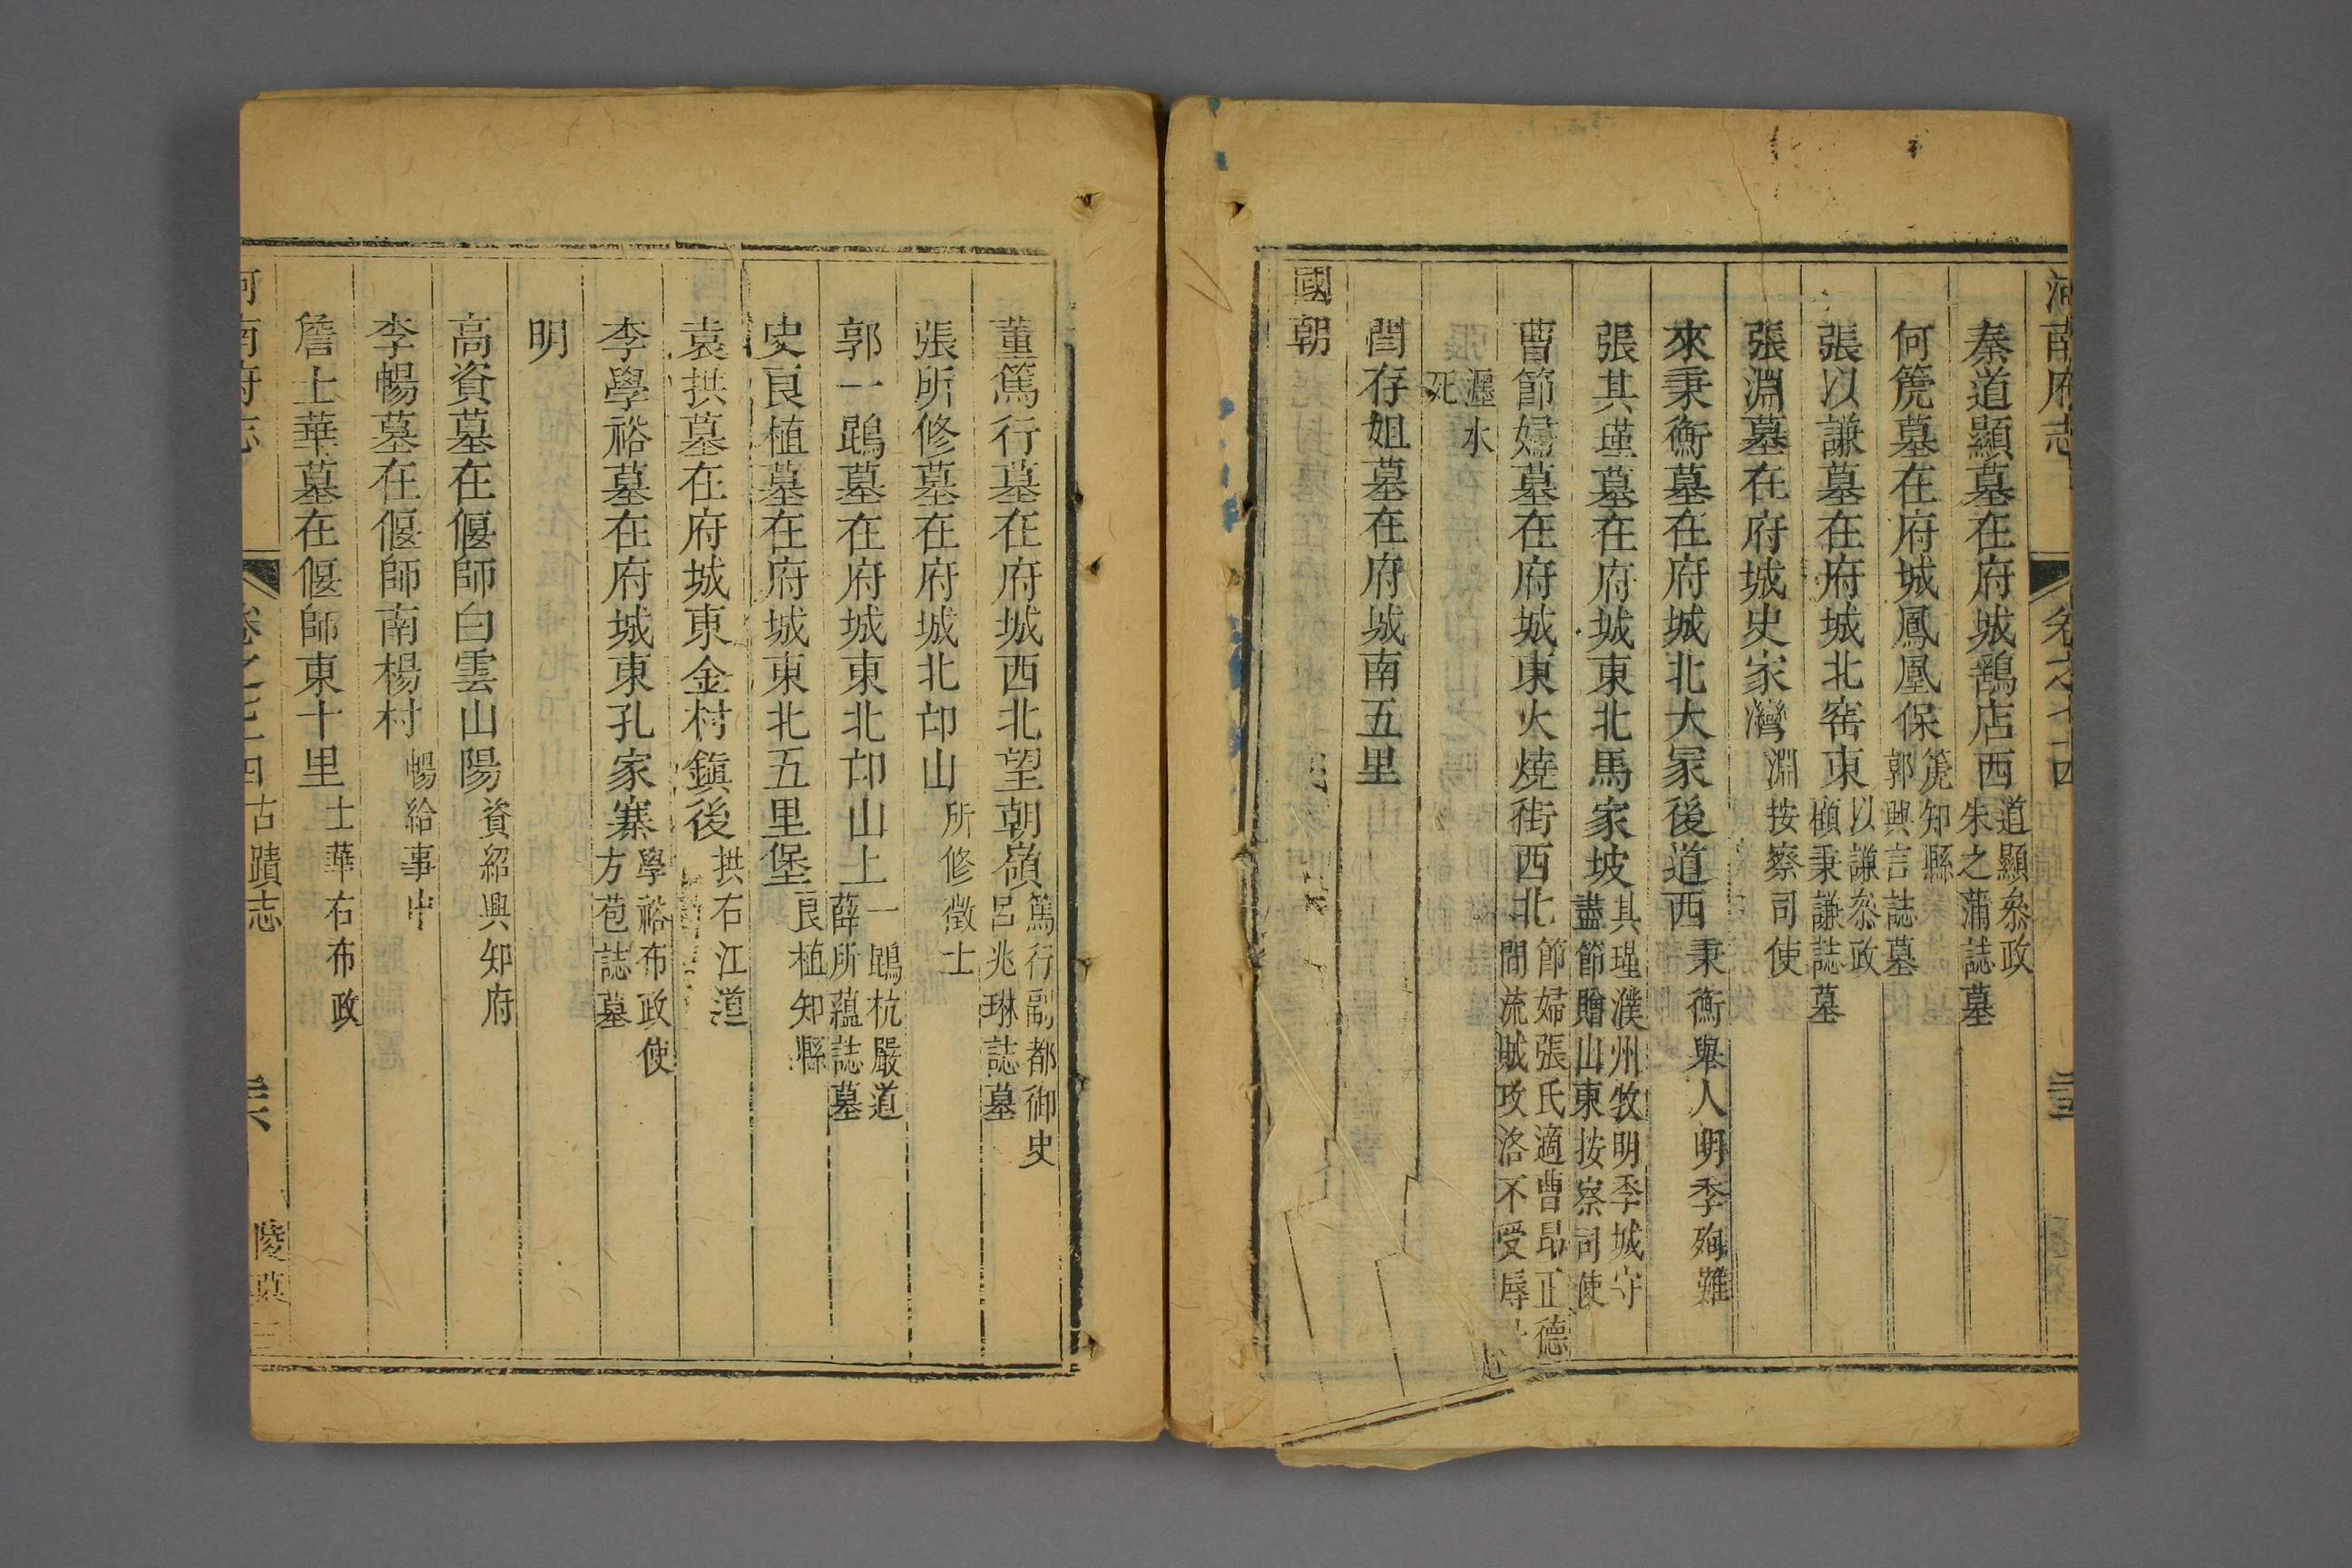 河南府志 卷之七十四
秦道顯墓在府城鵲店西 道顯叅政
朱之蒲誌墓
何箎墓在府城鳳凰保 箎知縣
郭興言誌墓
張以謙墓在府城北窑東 以謙叅政
顧秉謙誌墓
張淵墓在府城史家灣 淵按察司使
來秉衡墓在府城北大冢後道西 秉衡舉人明季殉難
張其瑾墓在府城東北馬家坡 其瑾濮州牧明季城守
盡節贈山東按察司使
曹節婦墓在府城東火燒街西北 節婦張氏適曹昂正德
間流賊攻洛不受辱
瀍水
死
閆存姐墓在府城南五里
國朝
董篤行墓在府城西北望朝嶺 篤行副都御史
呂兆琳誌墓
張所修墓在府城北邙山 所修徵士
郭一鶚墓在府城東北邙山上 一鶚杭嚴道
薛所蘊誌墓
史良植墓在府城東北五里堡 良植知縣
袁拱墓在府城東金村鎮後 拱右江道
李學裕墓在府城東孔家寨 學裕布政使
方苞誌墓
明
高資墓在偃師白雲山陽 資紹興知府
李暢墓在偃師南楊村 暢給事中
詹士華墓在偃師東十里 士華右布政
河南府志 卷之七十四 古蹟志 陵墓三